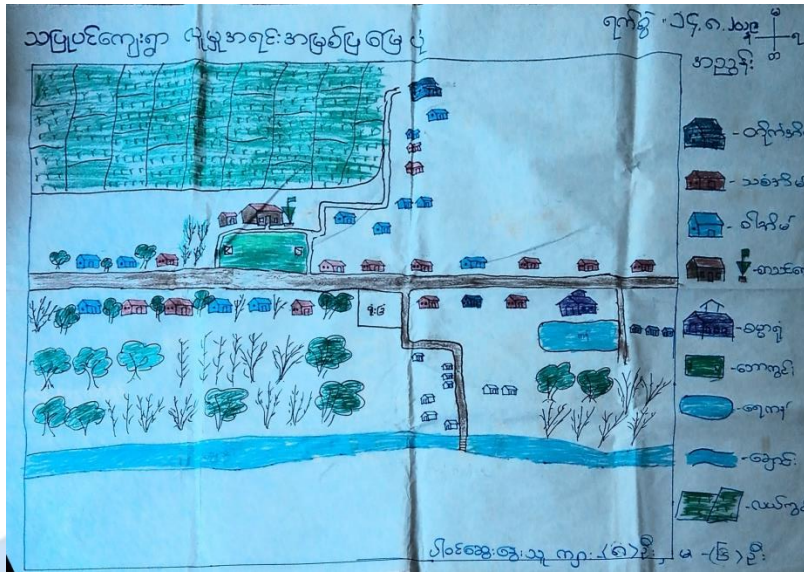 သပြုပင်ကျေးရွာ လူမှုအရင်းအမြစ်ပြ မြေပုံ
ရက်စွဲ - ၁၄.၈.
မ
ရ
တ
အညွှန်း
- တိုက်အိ
- သစ်အိမ်
- ဝါးအိမ်
- စာသင်
- ဓမ္မာရုံ
- ဘောကွင်း
- ရေကန်
- ချောင်း
- လယ်ကွ
ပါဝင်ဆွေးနွေးသူ ကျား - (၈) ဦး, မ - (၆) ဦး